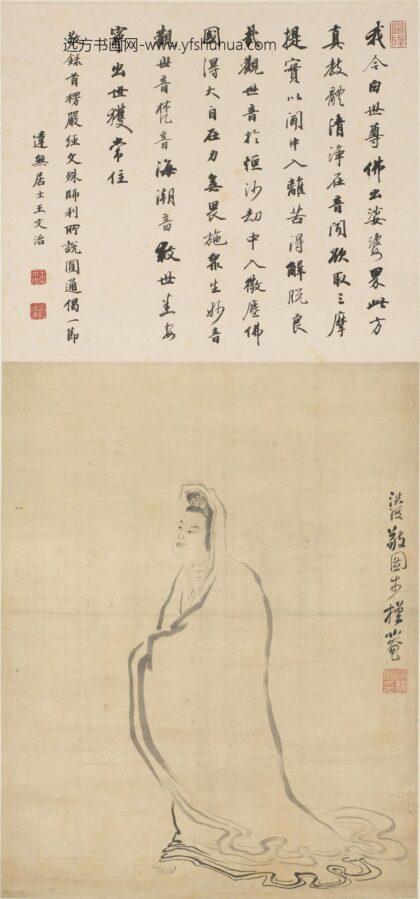 远方书画网-www.yfshuhua.com
我今白世尊佛出娑婆界此方
真教體清淨在音聞欲取三摩
提實以聞中入離苦得解脫良
哉觀世音於恒沙劫中入微塵佛
國得大自在力無畏施眾生妙音
觀世音梵音海潮音救世悉安
寧出世獲常住
敬錄首楞嚴經文殊師利所說圓通偈一節
達無居士王文治
敬圖